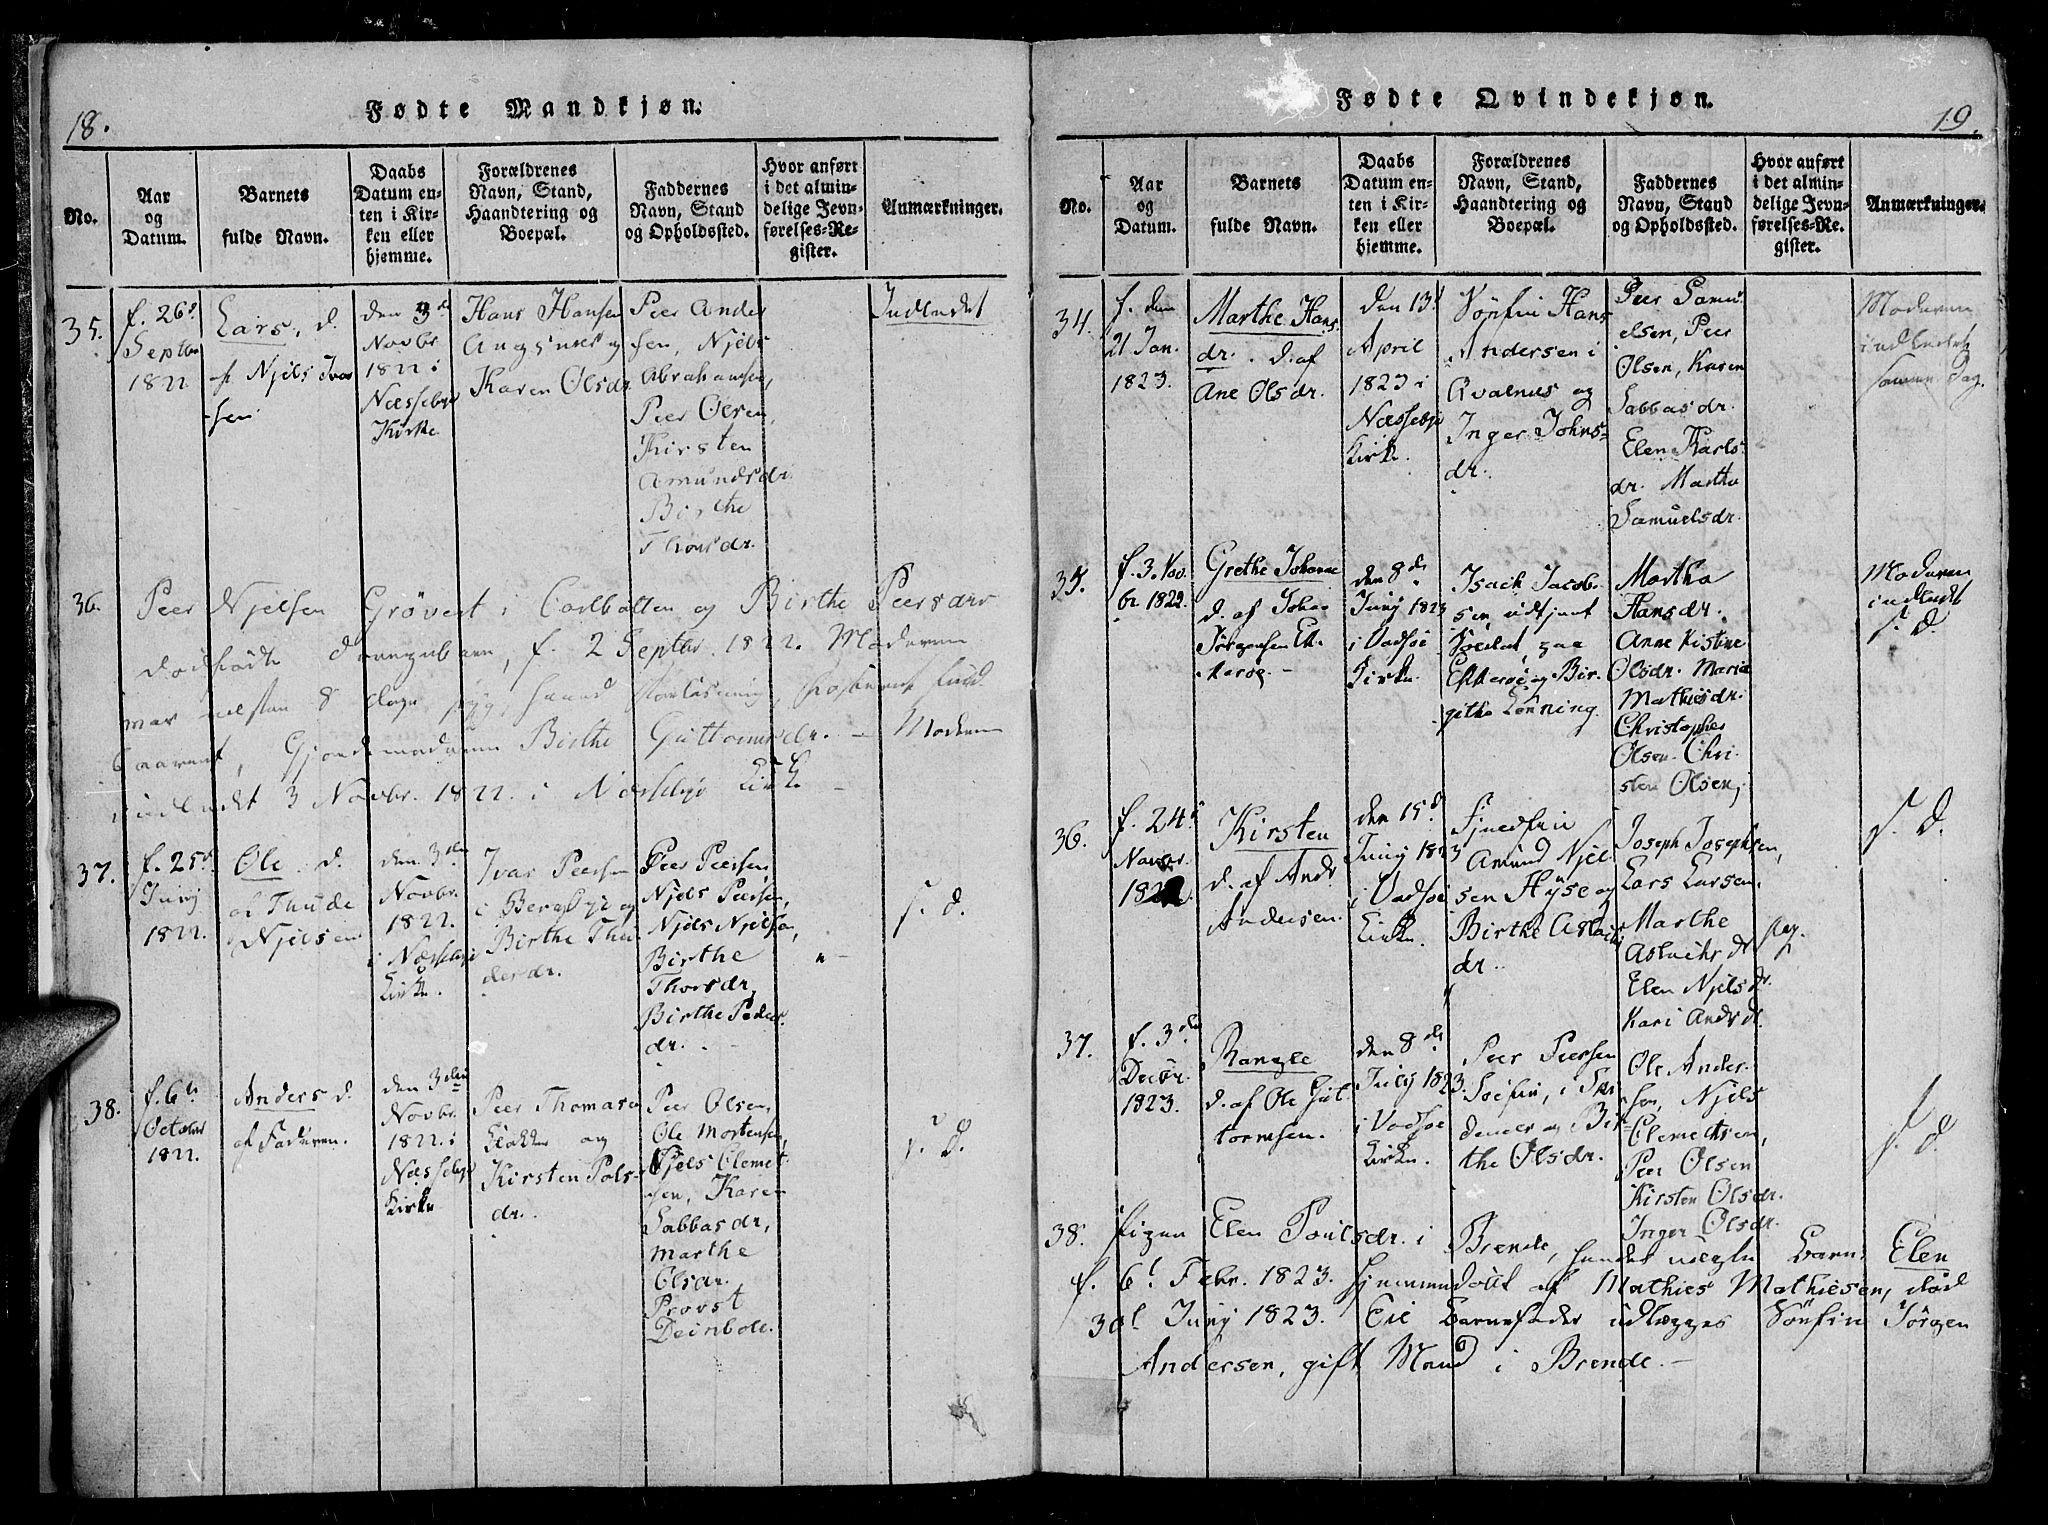 18.
Fødte Mandkjøn.
No.
Aar
og
Datum.
Barnets
fulde Navn.
Daabs
Datum en-
ten i Kir-
ken eller
hjemme.
Forældrenes
Navn, Stand,
Haandtering og
Boepæl.
Faddernes
Navn, Stand
og Opholdssted.
Hvor anført
i det almin-
delige Jevn-
førelses-Re-
gister.
Anmærkninger.
35.
f. 26d
Septbr
1822
Lars, d.
af Njels Ivar
sen
den 3d
Novbr
1822 i
Næssebye
Kirke
Hans Hansen
Angsnes og
Karen Olsdr
Peer Ander
sen, Njels
Abrahamsen,
Peer Olsen,
Kirsten
Amundsdr.
Birthe
Thorsdr.
Indledet
36.
Peer Njelsen Grøvert i Carlbotten og Birthe Peersdrs
dødfødte Drengebarn, f. 2 Septbr. 1822. Moderen
var næsten 8 dage syg,
Gjordemoderen Birthe Guttormsdr. – Moderen
indledet 3 Novbr. 1822. i Næssebye Kirke –
37.
f. 25d
Juny
1822.
Ole d.
af Thude
Njelsen
den 3die
Novbr.
1822.
i Næssebye
Kirke.
Ivar Peersen
i Bergebye og
Birthe Thu
desdr.
Peer Peersen,
Njels Peersen,
Njels Njelsen,
Birthe
Thorsdr,
Birthe Peder
dr.
s. d.
38.
f. 6te
October
1822.
Anders d.
af Faderen.
den 3die
Novbr.
1822. i
Næssebye
Kirke
Peer Thomasen
Klokker og
Kirsten Pols-
dr.
Peer Olsen,
Ole Mortensen,
Njels Clemet
sen, Karen
Sabbasdr,
Marthe
Olsdr.
Provst
Deinboll.
s. d.
19.
Fødte Qvindekjøn.
No.
Aar
og
Datum.
Barnets
fulde Navn.
Daabs
Datum en-
ten i Kir-
ken eller
hjemme.
Forældrenes
Navn, Stand,
Haandtering og
Boepæl.
Faddernes
Navn, Stand
og Opholdssted.
Hvor anført
i det almin-
delige Jevn-
førelses-Re-
gister.
Anmærkninger.
34.
f. den
21 Jan.
1823.
Marthe Hans
dr. d. af
Ane Olsdr.
den 13d
April
1823 i
Næssebye
Kirke.
Søefin Hans
Andersen i
Qvalnes og
Inger Johns-
dr.
Peer Samu
elsen, Peer
Olsen, Karen
Sabbasdr.
Elen Karls
dr. Marthe
Samuelsdr.
Moderen
indledet
samme Dag.
35.
f. 3. Nov.
br 1822.
Grethe Johanne
d. af Johan
Jørgensen Ek-
kerøe. –
den 8de
Juny 1823
i Vadsøe
Kirke.
Isach Jacob-
sen udtjent
Soldat, paa
Ekkerøe og Bir-
githa Lønning.
Martha
Hansdr.
Anne Kistine
Olsdr. Maria
Mathisdr.
Christopher
Olsen. Chri-
sten Olsen,
Moderen
indledet
s. d.
36.
f. 24d
Novbr.
1822.
Kirsten
d. af Andr
Andersen.
den 15d
Juny 1823
i Vadsøe
Kirke.
Fjeldfin
Amund Njel
sen Hyse og
Birthe Aslach
dr.
Joseph Josephsen,
Lars Larsen.
Marthe
Aslachs dr
Elen Njels dr.
Kari Andr dr.
s. d.
37.
f. 3die
Decbr.
1823.
Rangle
d. af Ole Gut
tormsen.
den 8de
July 1823.
i Vadsøe
Kirke.
Peer Peersen
Søefin, i
og Bir
the Olsdr.
Ole Ander-
sen, Njels
Clemetsen,
Peer Olsen
Kirsten Olsdr.
Inger Olsdr.
s. d.
38.
Pigen Elen Poulsdr. i Brende, hendes uægte Barn Elen
f. 6d Febr. 1823. hjemmedøbt af Mathies Mathiesen, død
30d Juny 1823. Til Barnefader udlægges Søefin Jørgen
Andersen, gift Mand i Brende. –